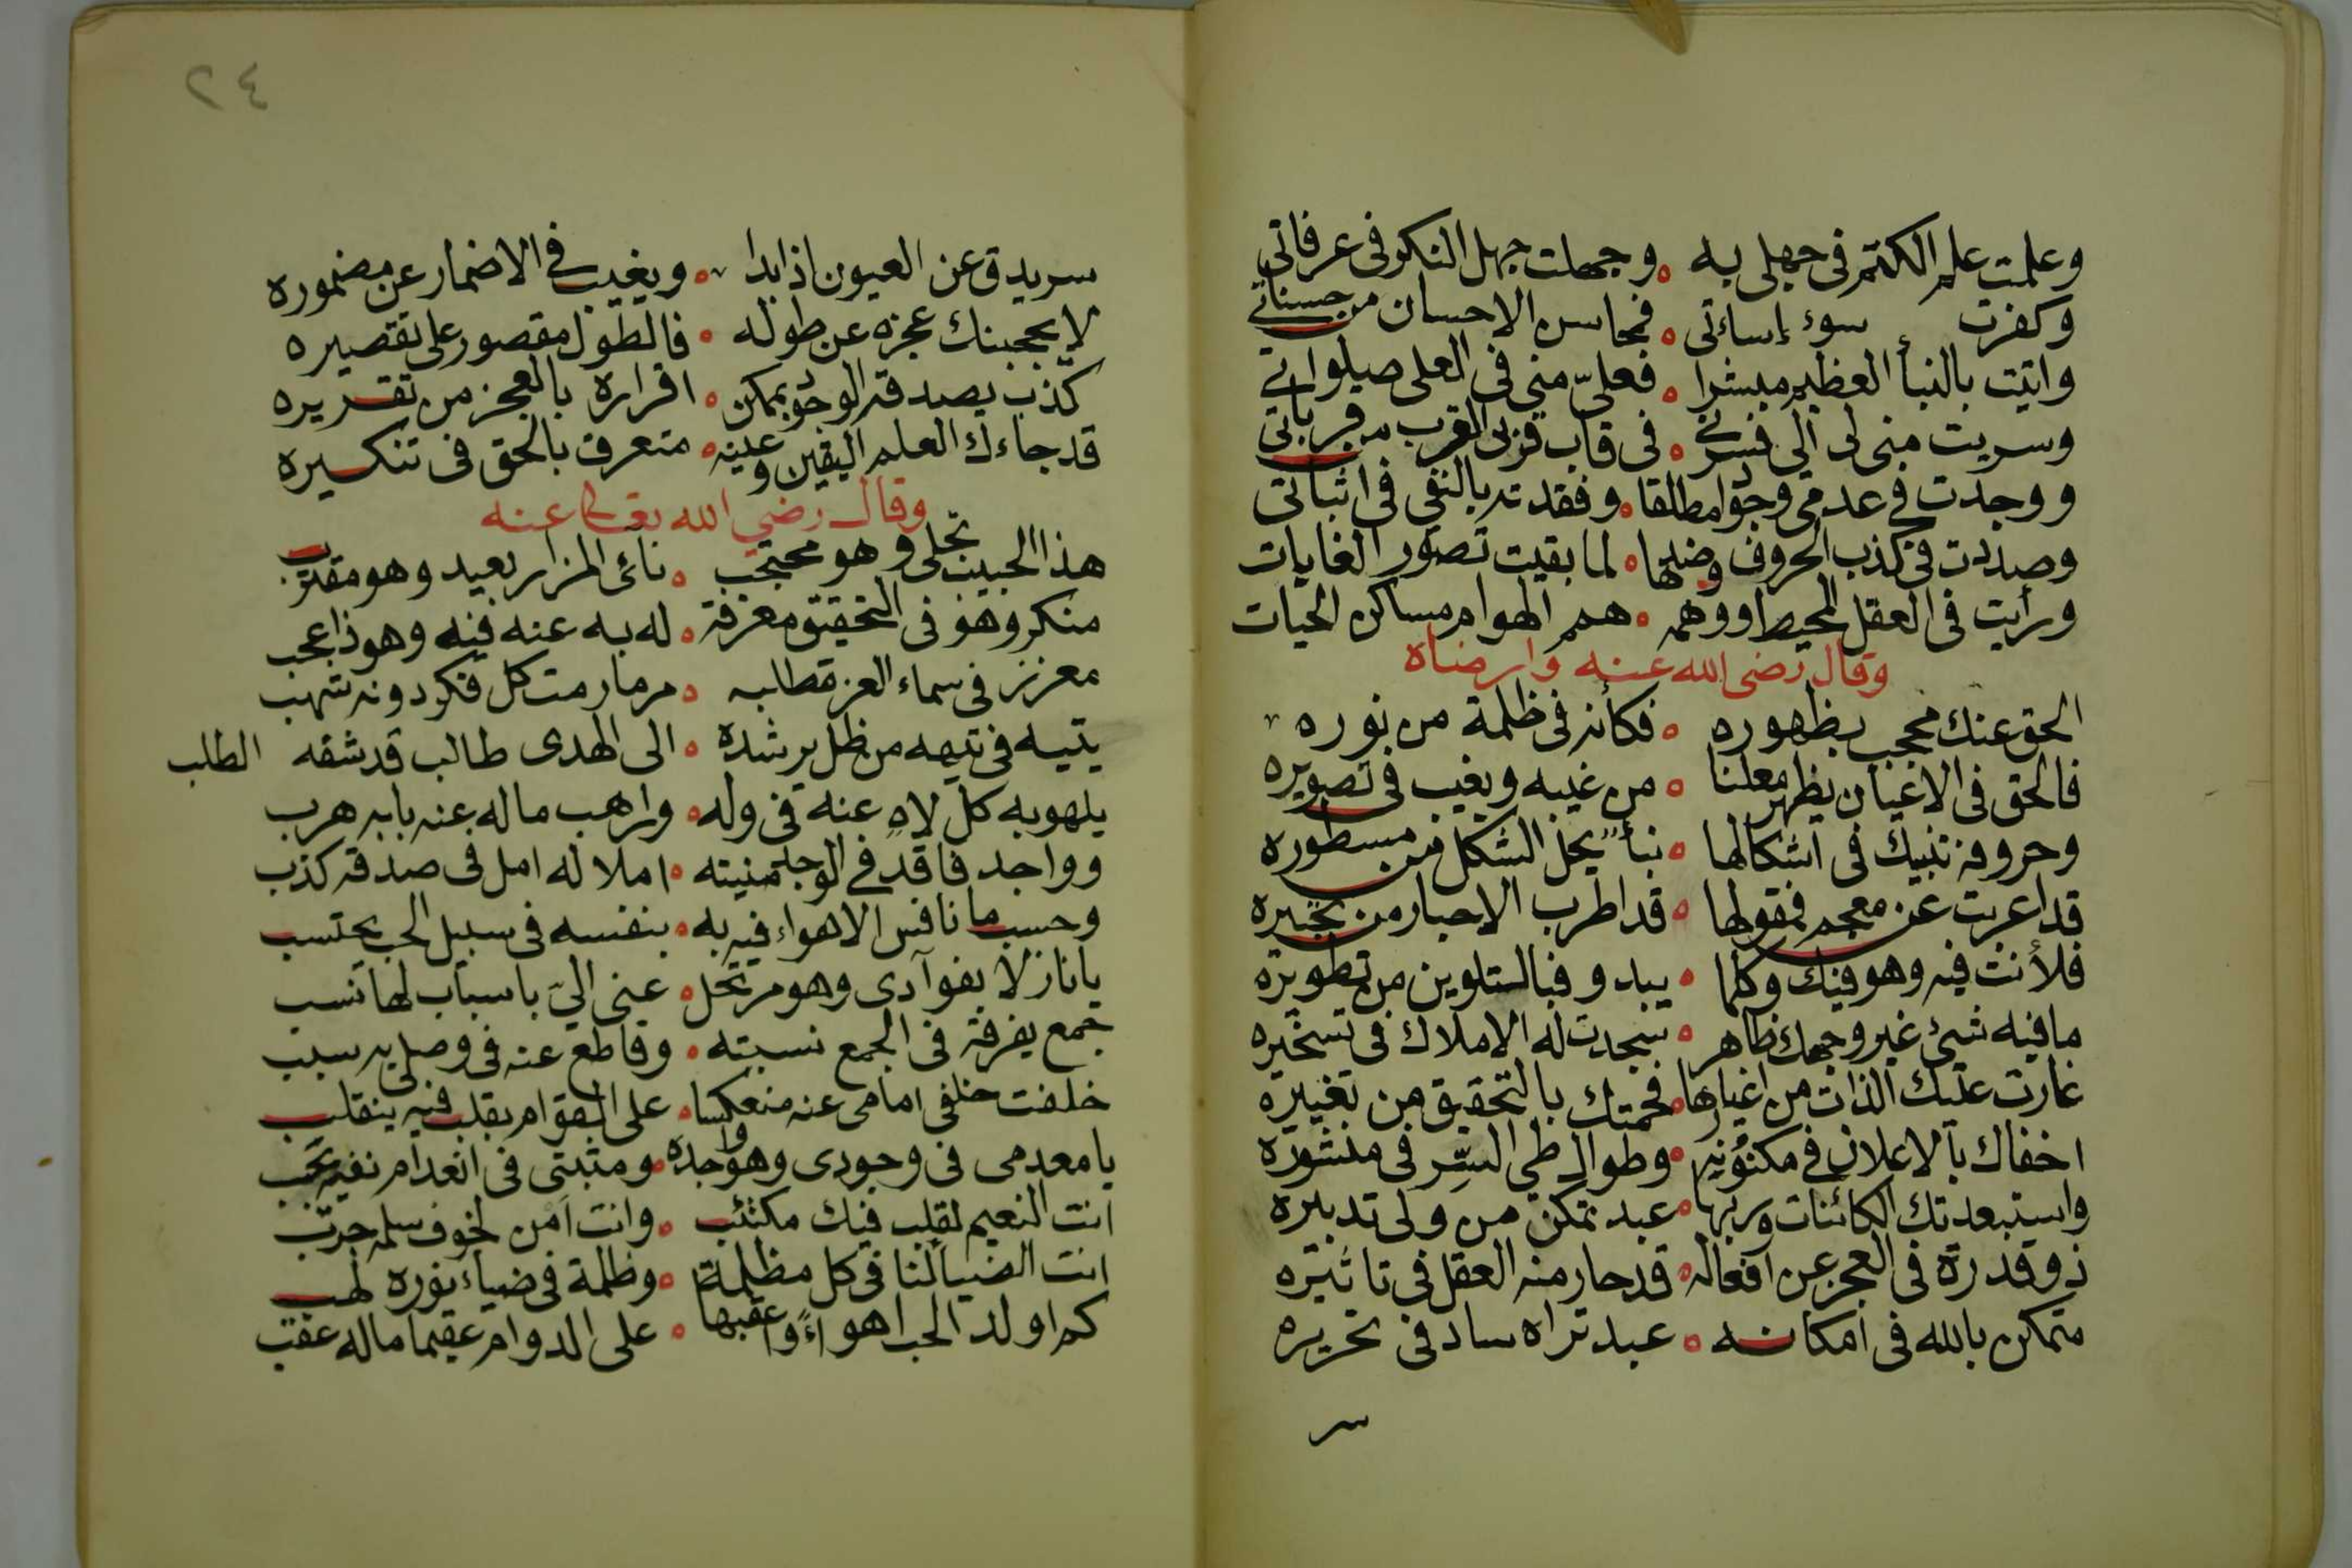 وعلمت علم الكتم فى جهلى به ٥ وجهلت جهل النكر فى عرفاتى
وكفرت سوء إساءتى ٥ فمحاسن الاحسان من حسناتي
واتيت بالنبأ العظيم مبشرا ٥ فعليّ منى فى العلى صيلواتي
وسريت منى لى الى فسرنى ٥ فى قاب قربى القرب به قرباتي
ووجدت في عدمى وجودا مطلقا ٥ وفقدته بالنفي فى اثباتى
وصددت فى كذب الحروف وضدها ٥ لما بقيت تصور الغايات
ورأيت فى العقل المحيط ووهمه ٥ همم الهوام مساكن الحيات
وقال رضى الله عنه وارضاه
الحق عنك محجب بظهوره ٥ فكأنه فى ظلمة من نوره
فالحق فى الاعيان يظهر معلنا ٥ من غيبه ويغيب فى تصويره
وحروفه تنبيك فى اشكالها ٥ نبأ يحل الشكل من مسطوره
قد اعربت عن معجم فمقولها ٥ قد اطرب الاحبار من تحبيره
فلأنت فيه وهو فيك وكلما ٥ يبدو فبالتلوين من تطويره
ما فيه شئ غير وجهك ظاهر ٥ سجدت له الاملاك فى تسخيره
غارت عليك الذات من اغيارها ٥ فحمتك بالتحقيق من تغييره
اخفاك بالاعلان في مكنونه ٥ وطواك طي السر فى منشوره
واستبعدتك الكائنات وربها ٥ عبد تمكن من ولى تدبيره
ذو قدرة فى العجز عن افعاله ٥ قد حار منه العقل فى تاثيره
متمكن بالله فى امكانه ٥ عبد تراه ساد فى تحريره
سر
٢٤
سر يدق عن العيون اذا بدا ٥ ويغيب في الاضمار عن مضموره
لا يحجبنك عجزه عن طوله ٥ فالطول مقصور على تقصيره
كذب يصدقه الوجود بمكن ٥ اقراره بالعجز من تقريره
قد جاءك العلم اليقين وعينه ٥ متعرف بالحق فى تنكيره
وقال رضي الله تعالى عنه
هذا الحبيب تجلى وهو محتجب ٥ نائى المزار بعيد وهو مقترب
منكر وهو فى التحقيق معرفة ٥ له به عنه فيه وهو ذا عجب
معزز فى سماء العز مطلبه ٥ مرمار مت كل فكر دونه شهب
يتيه فى تيهه من ظل يرشده ٥ الى الهدى طالب قد شفه الطلب
يلهو به كل لاهٍ عنه فى وله ٥ وراهب ماله عنه بابه هرب
وواجد فاقد في الوجد منيته ٥ املا له امل فى صدقه كذب
وحسب ما نافس الاهواء فيه به ٥ بنفسه فى سبيل الحب يحتسب
يا نازلا بفوآدى وهو مرتحل ٥ عنى اليّ باسباب لها نسب
جمع يفرقه فى الجمع نسبته ٥ وقاطع عنه فى وصلى به سبب
خلفت خلفى امامى عنه منعكسا ٥ على القوام بقلب فيه ينقلب
يا معدمى فى وجودى وهو واجده ٥ ومثبتى فى انعدام نفيه يجب
انت النعيم لقلب فيك مكتئب ٥ وانت امن لخوف سلمه حرب
انت الضيا لنا فى كل مظلمة ٥ وظلمة فى ضياء نوره لهب
كم اولد الحب اهواءً واعقبها ٥ على الدوام عقيما ماله عقب